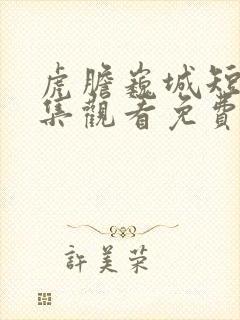 虎膽巍城短
集觀看免費
許美荣